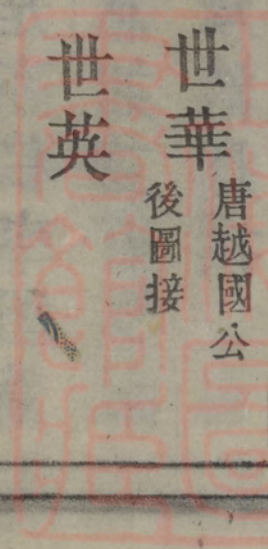 世華
唐越國公
後圖接
世英